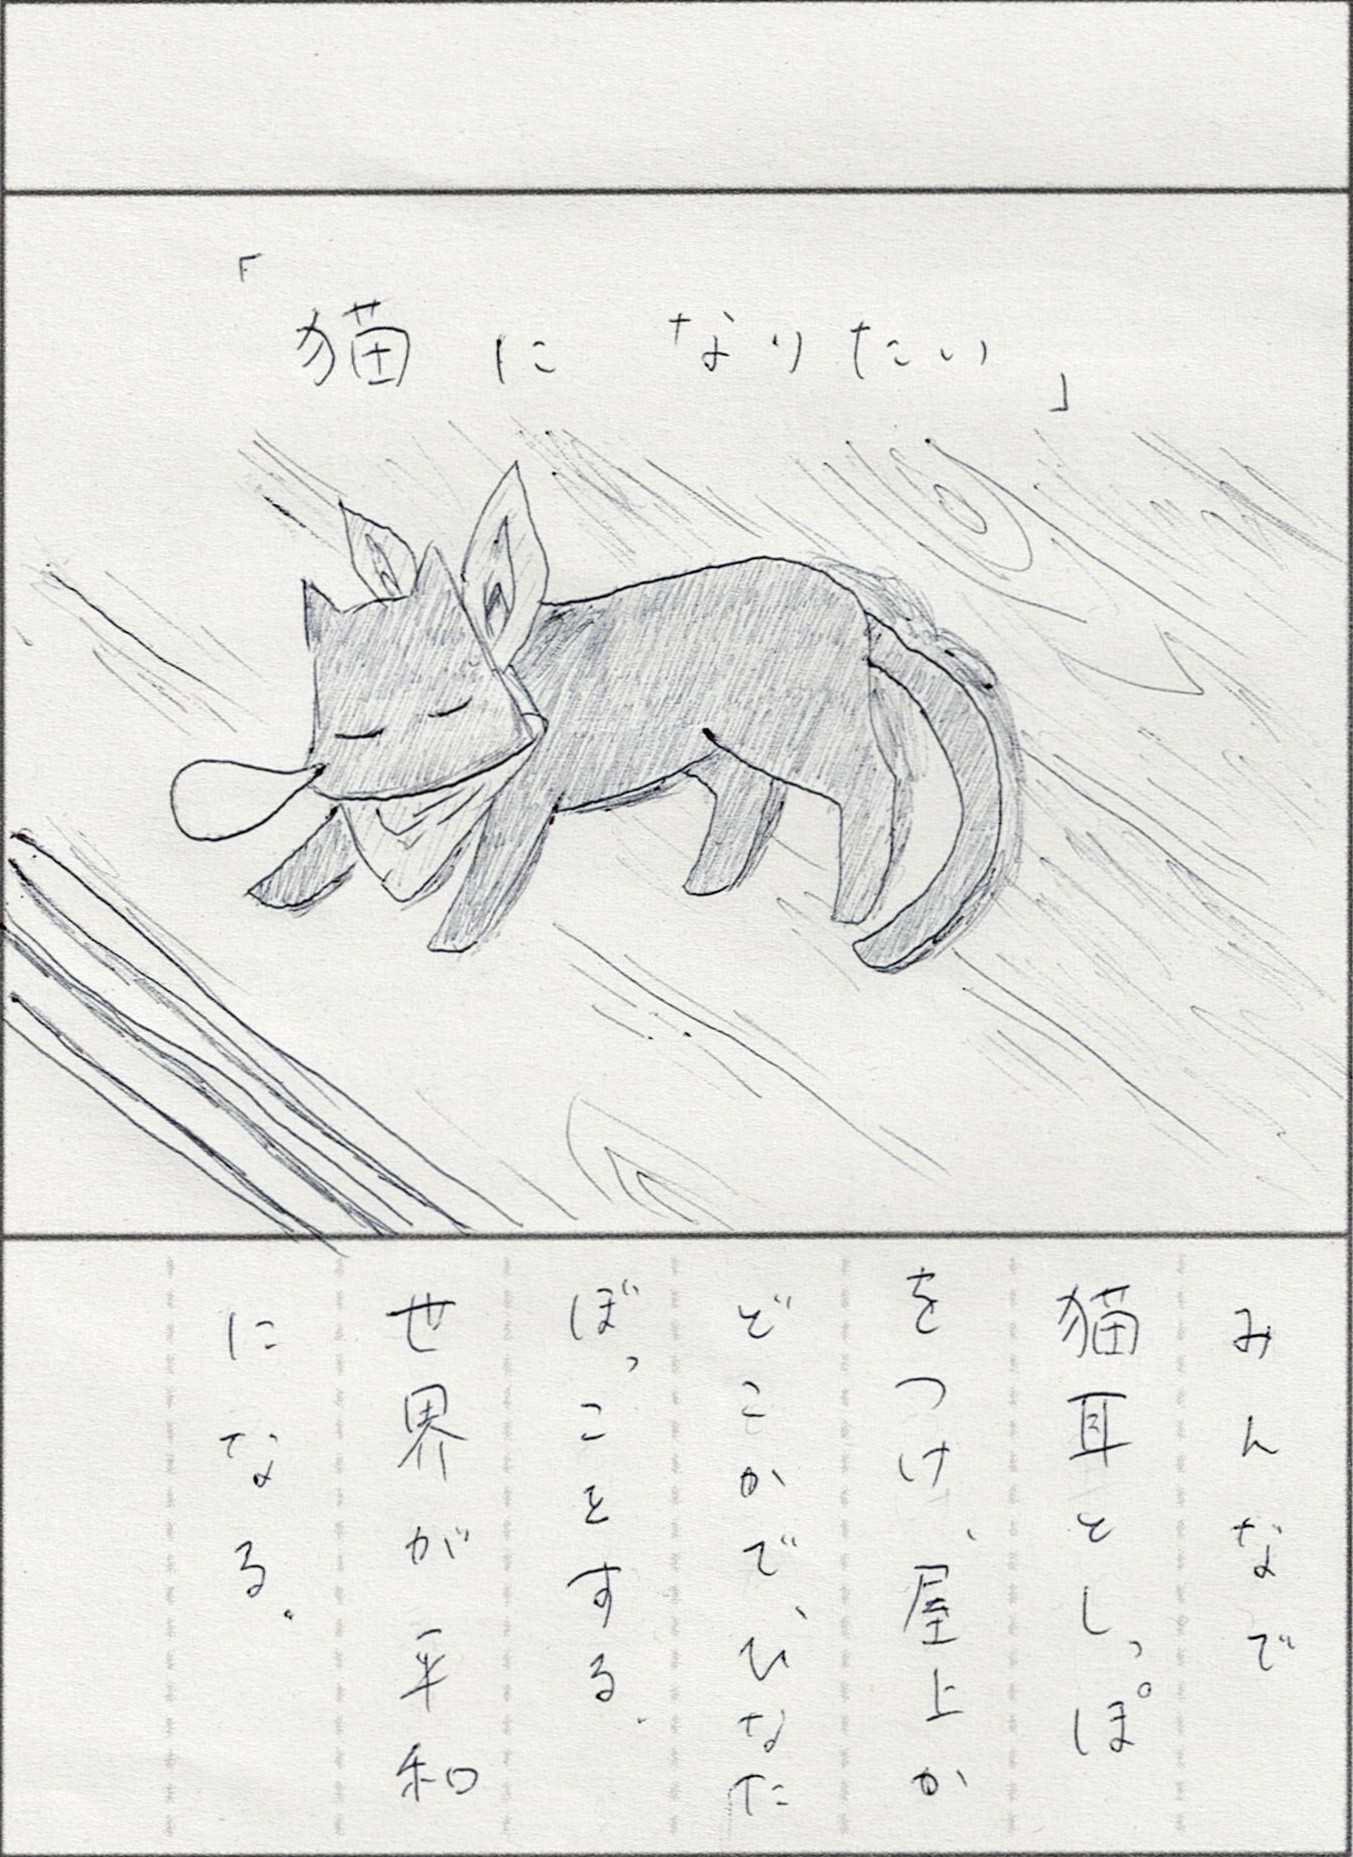 「猫になりたい」
みんなで
猫耳としっぽ
をつけ、屋上か
どこかで、ひなた
ぼっことする.
世界が平和
になる.